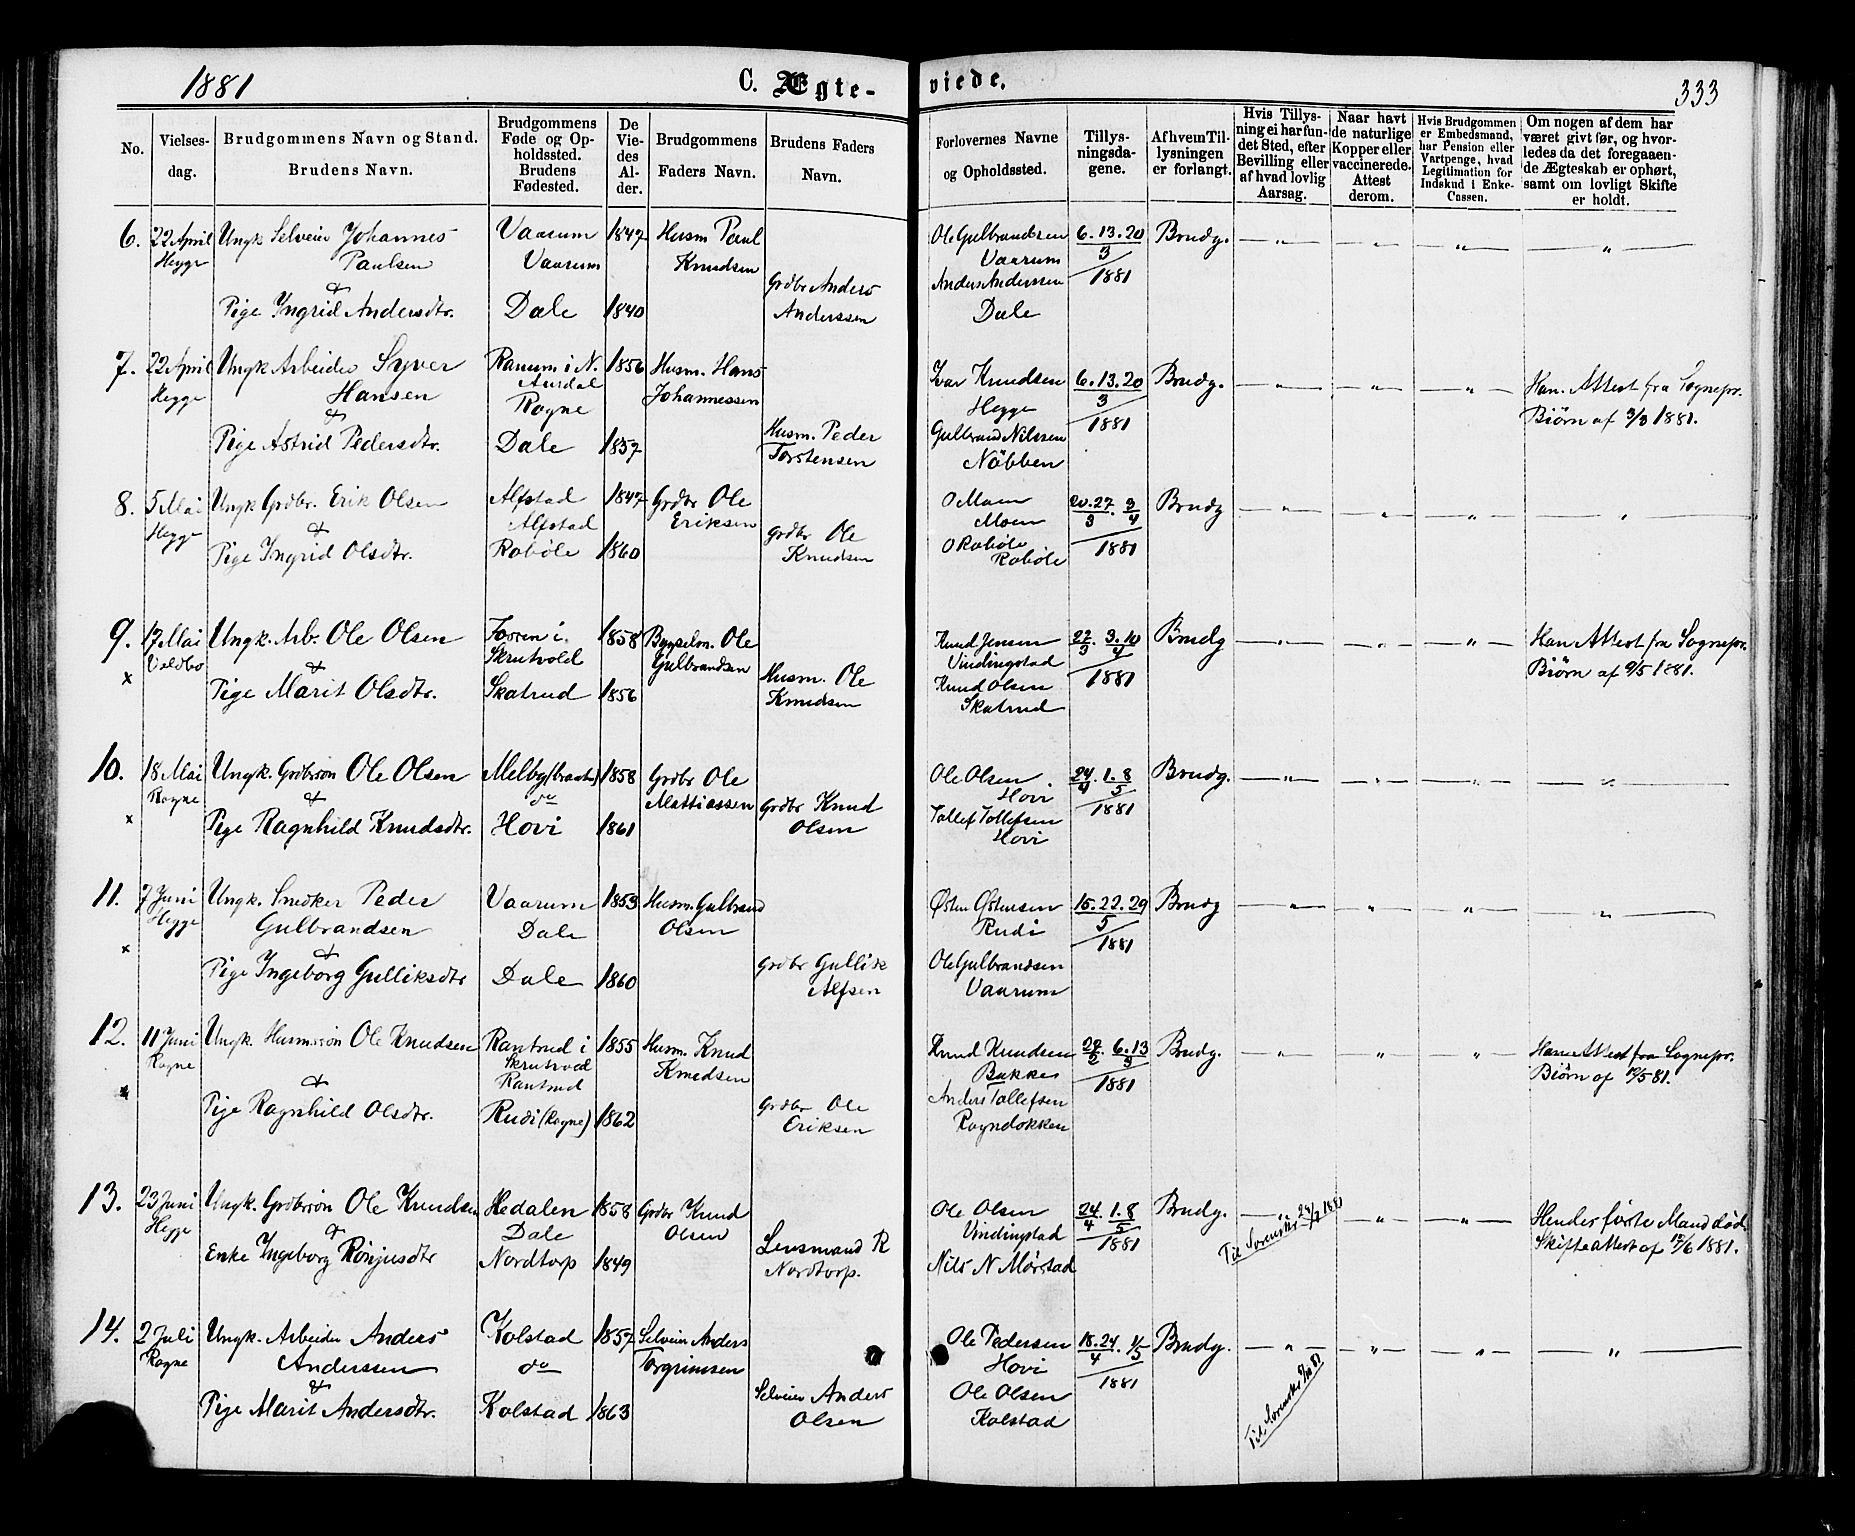 1881
C. Ægte-
viede.
333
No.
Vielses-
dag.
Brudgommens Navn og Stand.
Brudens Navn.
Brudgommens
Føde og Op-
holdssted.
Brudens
Fødested.
De
Vie-
des
Al-
der.
Brudgommens
Faders Navn.
Brudens Faders
Navn.
Forlovernes Navne
og Opholdssted.
Tillys-
ningsda-
gene.
Af hvem Til-
lysningen
er forlangt.
Hvis Tillys-
ning ei har fun-
det Sted, efter
Bevilling eller
af hvad lovlig
Aarsag.
Naar havt
de naturlige
Kopper eller
vaccinerede.
Attest
derom.
Hvis Brudgommen
er Embedsmand,
har Pension eller
Vartpenge, hvad
Legitimation for
Indskud i Enke-
Cassen.
Om nogen af dem har
været givt før, og hvor-
ledes da det foregaaen-
de Ægteskab er ophørt,
samt om lovligt Skifte
er holdt.
6.
22 April
Hegge
Ungk Selveier Johannes
Paulsen
&
Pige Ingrid Andersdtr.
Vaarum
Vaarum
Dale
1847
1840
Husm Paul
Knudsen
Grdbr Anders
Anderssen
Ole Gulbrandsen
Vaarum
Anders Anderssen
Dale
6. 13. 20
3
1881
Brudg.
7.
22 April
Hegge
Ungk Arbeider Syver
Hansen
&
Pige Astrid Pedersdtr.
Ranum i N.
Aurdal
Rogne
Dale
1856
1857
Husm. Hans
Johannessen
Husm. Peder
Torstensen
Ivar Knudsen
Hegge
Gulbrand Nilssen
Nöbben
6. 13. 20
3
1881
Brudg.
Han. Attest fra Sognepr.
Biørn af 3/3 1881.
8.
5 Mai
Hegge
Ungk Grdbr. Erik Olsen
&
Pige Ingrid Olsdtr.
Alfstad
Alfstad
Robøle
1847
1860
Grdbr Ole
Eriksen
Grdbr Ole
Knudsen
O Moen
Moen
O Robøle
Robøle
20. 27. 3
3 4
1881
Brudg
9.
17 Mai
Voldbo
x
Ungk. Arb. Ole Olsen
&
Pige Marit Olsdtr.
Fossen i
Skrutvold
Skatrud
1858
1856
Bygselm. Ole
Gulbrandsen
Husm. Ole
Knudsen
Knud Jensen
Vindingstad
Knud Olsen
Skatrud
27. 3. 10
3 4
1881
Brudg
Han Attest fra Sognepr.
Biørn af 9/5 1881.
10.
18 Mai
Rogne
x
Ungk. Grdbrsøn Ole Olsen
&
Pige Ragnhild Knudsdtr.
Melby
do
Hovi
1858
1861
Grdbr Ole
Mattiassen
Grdbr Knud
Olsen
Ole Olsen
Hovi
Tollef Tollefsen
Hovi
24. 1. 8
4 5
1881
Brudg.
11.
7 Juni
Hegge
x
Ungk. Snedker Peder
Gulbrandsen
&
Pige Ingeborg Gulliksdtr
Vaarum
Dale
Dale
1853
1860
Husm. Gulbrand
Olsen
Grdbr Gullik
Alfsen
Østen Østensen
Rudi
Ole Gulbrandsen
Vaarum
15. 22. 29
5
1881
Brudg
12.
11 Juni
Rogne
x
Ungk. Husm.søn Ole Knudsen
&
Pige Ragnhild Olsdtr.
Rantrud i
Skrutvold
Rantrud
Rudi (Rogne)
1855
1862
Husm. Knud
Knudsen
Grdbr Ole
Eriksen
Knud Knudsen
Bakker
Anders Tollefsen
Rogndokken
6. 13
1881
Brudg.
Han Attest fra Sognepr.
Biørn af 19/5 81.
13.
23 Juni
Hegge
Ungk. Grdbrsøn Ole Knudsen
&
Enke Ingeborg Rönjusdtr
Hedalen
Dale
Nordtorp
1858
1849
Grdbr Knud
Olsen
Lensmand R
Nordtorp.
Ole Olsen
Vindingstad
Nils N Mörstad
24. 1. 8
4 5
1881
Brudg.
Hendes første Mand død
Skifteattest af 17/6 1881.
14.
2 Juli
Rogne
Ungk. Arbeider Anders
Anderssen
&
Pige Marit Andersdtr.
Kolstad
do
Kolstad
1857
1863
Selveier Anders
Torgrimsen
Selveier Anders
Olsen
Ole Pedersen
Hovi
Ole Olsen
Kolstad
18. 24. 1/5
4
1881
Brudg.